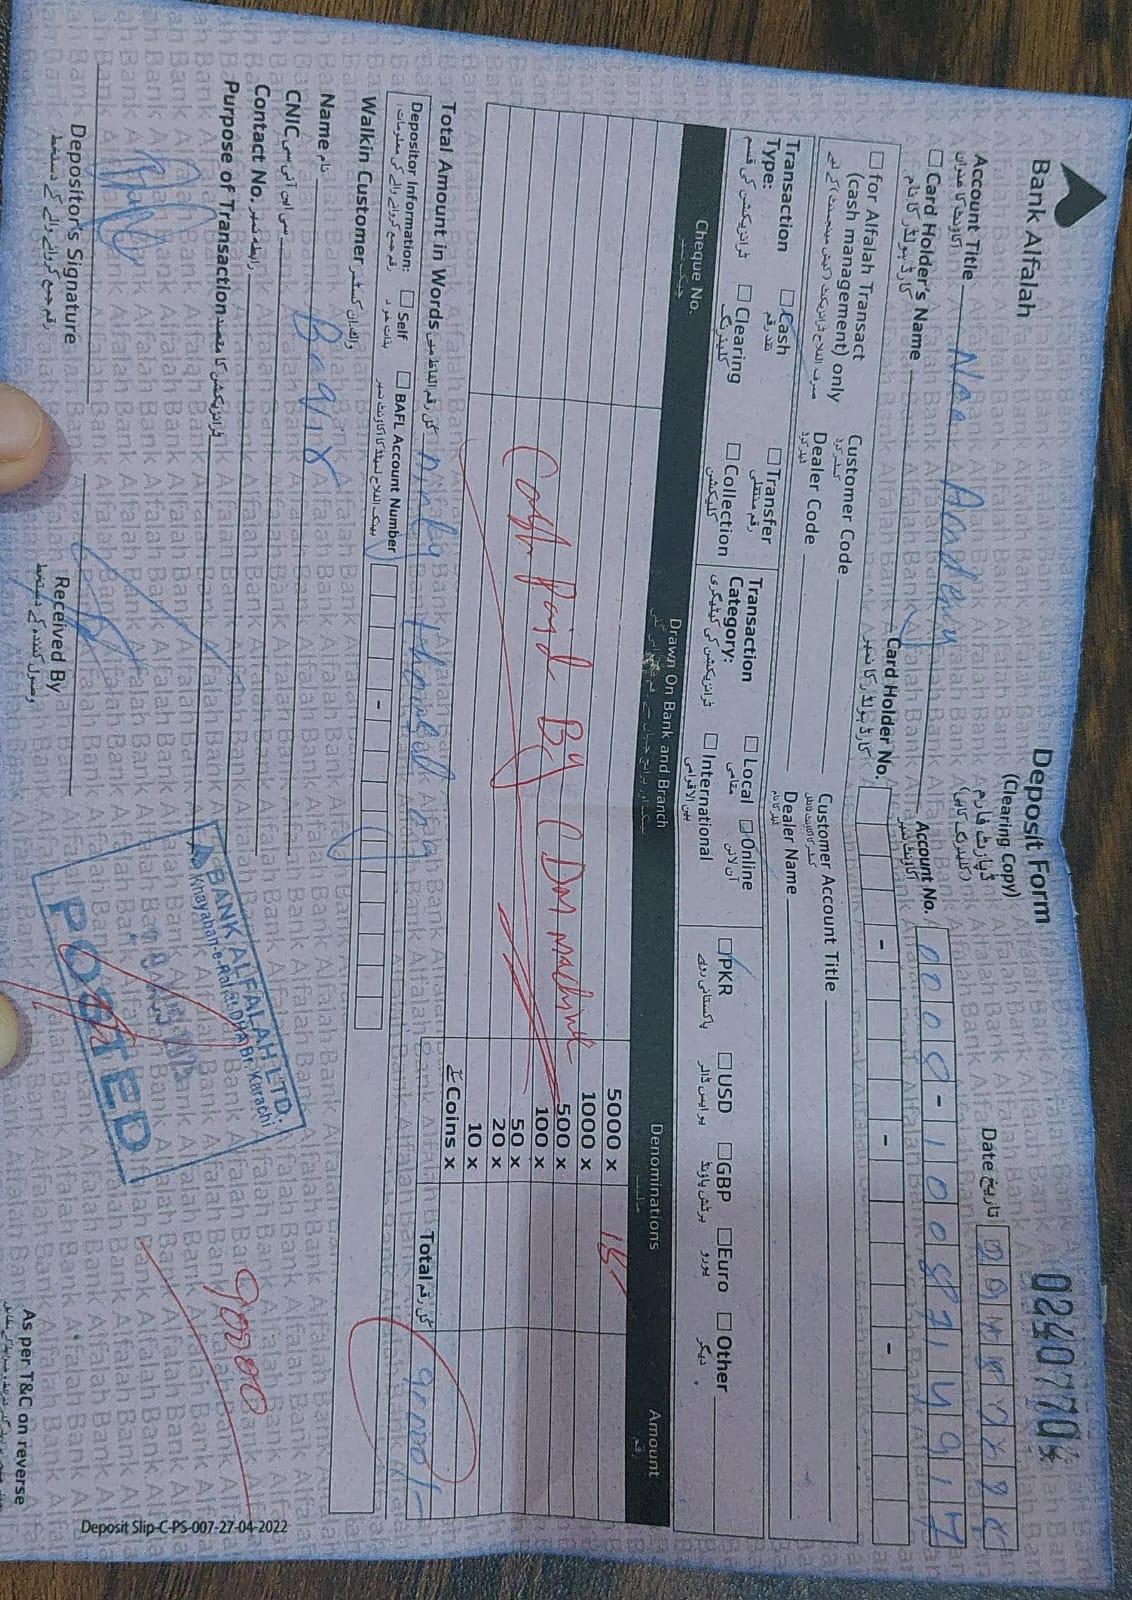 Bank Alfalah
Deposit Form
(Clearing Copy)
ڈپازٹ فارم
(کلیئرنگ کاپی)
02407704
Date تاریخ
Account Title
اکاؤنٹ کا عنوان
Account No. 0000-1008714917
اکاؤنٹ نمبر
Card Holder's Name
کارڈ ہولڈر کا نام
Card Holder No.
کارڈ ہولڈر کا نمبر
for Alfalah Transact
(cash management) only
Customer Code
Customer Account Title
Dealer Code
Dealer Name
Transaction Type:
ٹرانزیکشن کی قسم
Cash
نقد رقم
Transfer
رقم منتقلی
Clearing
کلیئرنگ
Collection
کلیکشن
Transaction Category:
ٹرانزیکشن کی کیٹیگری
Local
مقامی
Online
آن لائن
International
بین الاقوامی
PKR
پاکستانی روپے
USD
یو ایس ڈالر
GBP
برٹش پاونڈ
Euro
یورو
Other
دیگر
Cheque No.
چیک نمبر
Drawn On Bank and Branch
Denominations
Amount
رقم
5000 x 18/
1000 x
500 x
100 x
50 x
20 x
10 x
Coins x
Cash Paid By CDM machine
Total Amount in Words کل رقم الفاظ میں Ninty thousand only
Total کل رقم 90000/-
Depositor Information:
رقم جمع کروانے والے کی معلومات:
Self
بذات خود
BAFL Account Number
Walkin Customer واک ان کسٹمر
Name نام Baqir
CNIC سی این آئی سی
Contact No. رابطہ نمبر
Purpose of Transaction ٹرانزیکشن کا مقصد
Depositor's Signature
رقم جمع کروانے والے کے دستخط
Received By
وصول کنندہ کے دستخط
BANK ALFALAH LTD.
Khayaban-e-Rahat DHA Br. Karachi
POSTED
90000
As per T&C on reverse
Deposit Slip-C-PS-007-27-04-2022